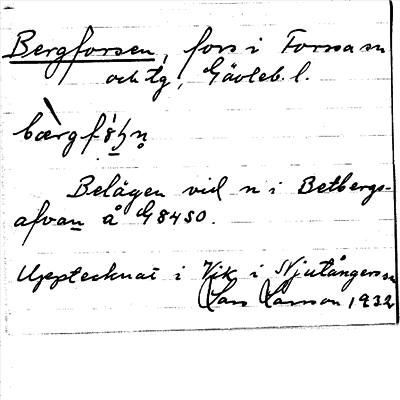 Bergforsen, fors i Forssa sn
och tg, Gävleb. l.
Belägen vid n i Betbergs-
afvan å G8450.
Upptecknat i Vik i Njutångers sn
Lars Larsson 1932